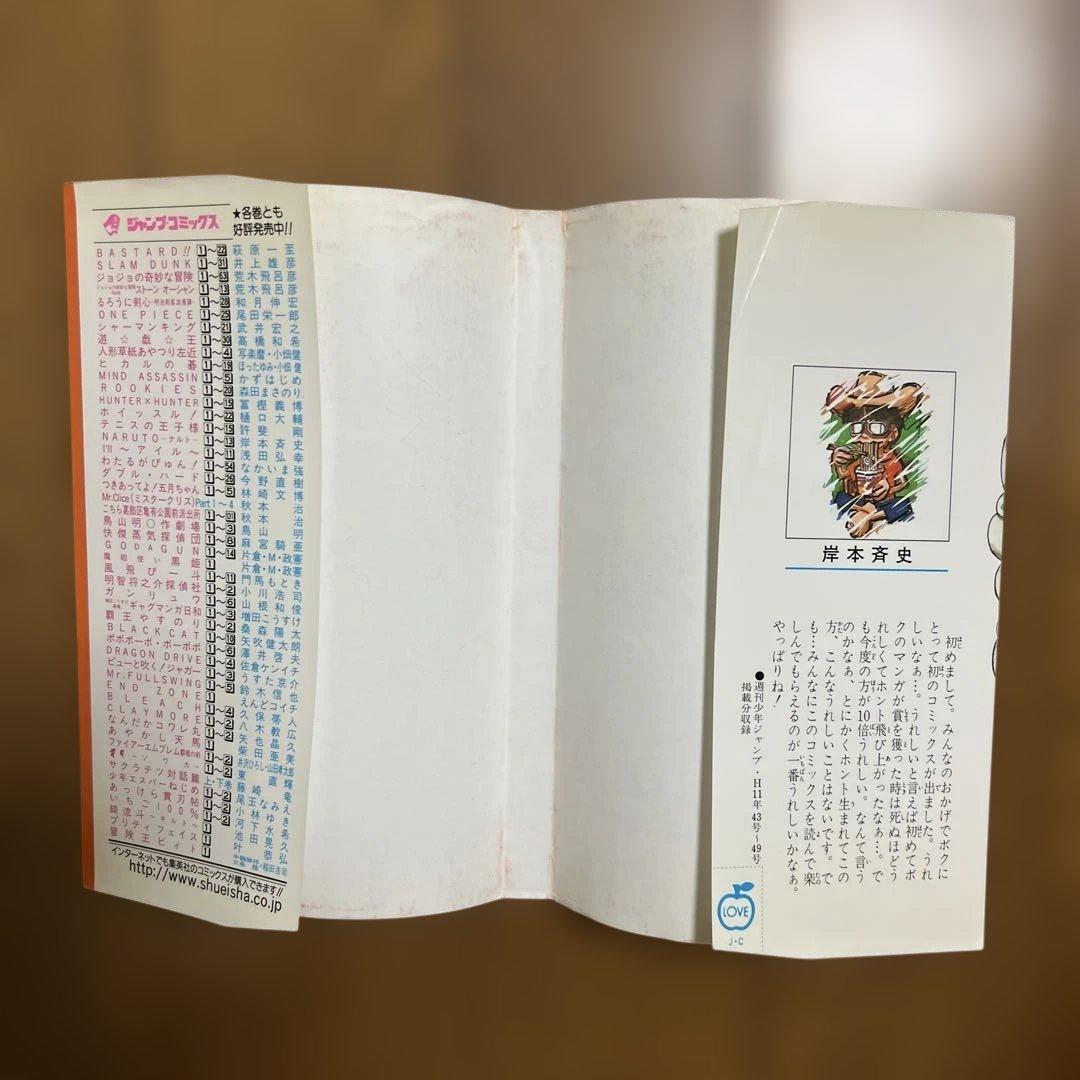 ジャンプコミックス
★各巻とも
好評発売中!!
BASTARD!! 1～22 萩原一至
SLAM DUNK 1～31 井上雄彦
ジョジョの奇妙な冒険 1～63 荒木飛呂彦
ストーンオーシャン 1～13 荒木飛呂彦
るろうに剣心-明治剣客浪漫譚- 1～28 和月伸宏
ONE PIECE 1～25 尾田栄一郎
シャーマンキング 1～21 武井宏之
遊☆戯☆王 1～30 高橋和希
人形草紙あやつり左近 1～4 写楽麿・小畑健
ヒカルの碁 1～19 ほったゆみ・小畑健
MIND ASSASSIN 1～5 かずはじめ
ROOKIES 1～20 森田まさのり
HUNTER×HUNTER 1～15 冨樫義博
ホイッスル! 1～22 樋口大輔
テニスの王子様 1～19 許斐剛
NARUTO-ナルト- 1～13 岸本斉史
I'll～アイル～ 1～11 浅田弘幸
わたるがぴゅん! 1～54 なかいま強
ダブル・ハード 1～26 今野直樹
つきあってよ!五月ちゃん 1～5 林崎文博
Mr.Clice(ミスタークリス) Part1～4 秋本治
こちら葛飾区亀有公園前派出所 1～131 秋本治
鳥山明○作劇場 1～3 鳥山明
快傑蒸気探偵団 1～8 麻宮騎亜
GODAGUN 1～14 片倉・M・政憲
魔砲使い黒姫 片倉・M・政憲
風飛び一斗 1～11 門馬もとき
明智将之介探偵社 1～2 小川浩司
ガンリュウ 1～6 山根和俊
ギャグマンガ日和 1～3 増田こうすけ
覇王やすのり 1～2 桑森陽太
BLACK CAT 1～10 矢吹健太朗
ボボボーボ・ボーボボ 1～6 澤井啓夫
DRAGON DRIVE 1～4 佐倉ケンイチ
ピューと吹く!ジャガー 1～4 うすた京介
Mr.FULLSWING 1～5 鈴木信也
END ZONE えんどコイチ
BLEACH 1～4 久保帯人
CLAYMORE 1～2 八木教広
なんだかコワレ丸 1～2 矢也晶久
あやかし天馬 柴田亜美
ファイアーエムブレム覇者の剣 1～2 井沢ひろし・山田孝太郎
ソワカ 1～2 東直輝
サクラテツ対話篇 上・下巻 藤崎竜
少年エスパーねじめ 1～2 尾玉なみえ
あっけら貫刃帖 1～2 小林ゆき
いちご100% 1～2 河下水希
綺流斗-キルト- 1 池田晃久
プリティフェイス 1 叶恭弘
冒険王ビィト 1 三条陸・稲田浩司
インターネットでも集英社のコミックスが購入できます!!
http://www.shueisha.co.jp
岸本斉史
初めまして。みんなのおかげでボクに
とって初のコミックスが出ました。うれ
しいなぁ…。うれしいと言えば初めてボ
クのマンガが賞を獲った時は死ぬほどう
れしくてホント飛び上がったなぁ…。で
も今度の方が10倍うれしい。なんて言う
のかなぁ、とにかくホント生まれてこの
方、こんなうれしいことはないです。で
も…みんなにこのコミックスを読んで楽
しんでもらえるのが一番うれしいかなぁ。
やっぱりね!
●週刊少年ジャンプ・H11年43号～49号
掲載分収録
LOVE
J・C